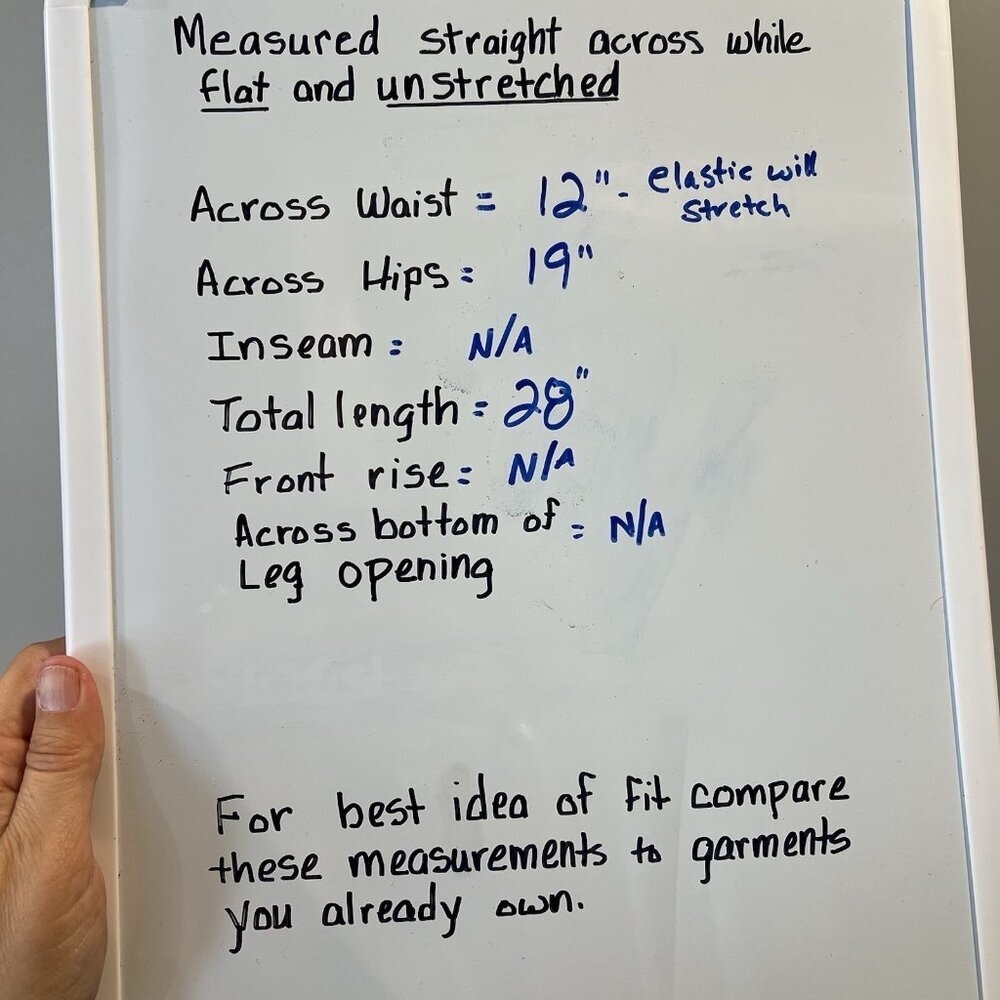 Measured straight across while
flat and unstretched
Across Waist = 12" - elastic will
stretch
Across Hips = 19"
Inseam = N/A
Total length = 28"
Front rise = N/A
Across bottom of = N/A
Leg opening
For best idea of fit compare
these measurements to garments
you already own.